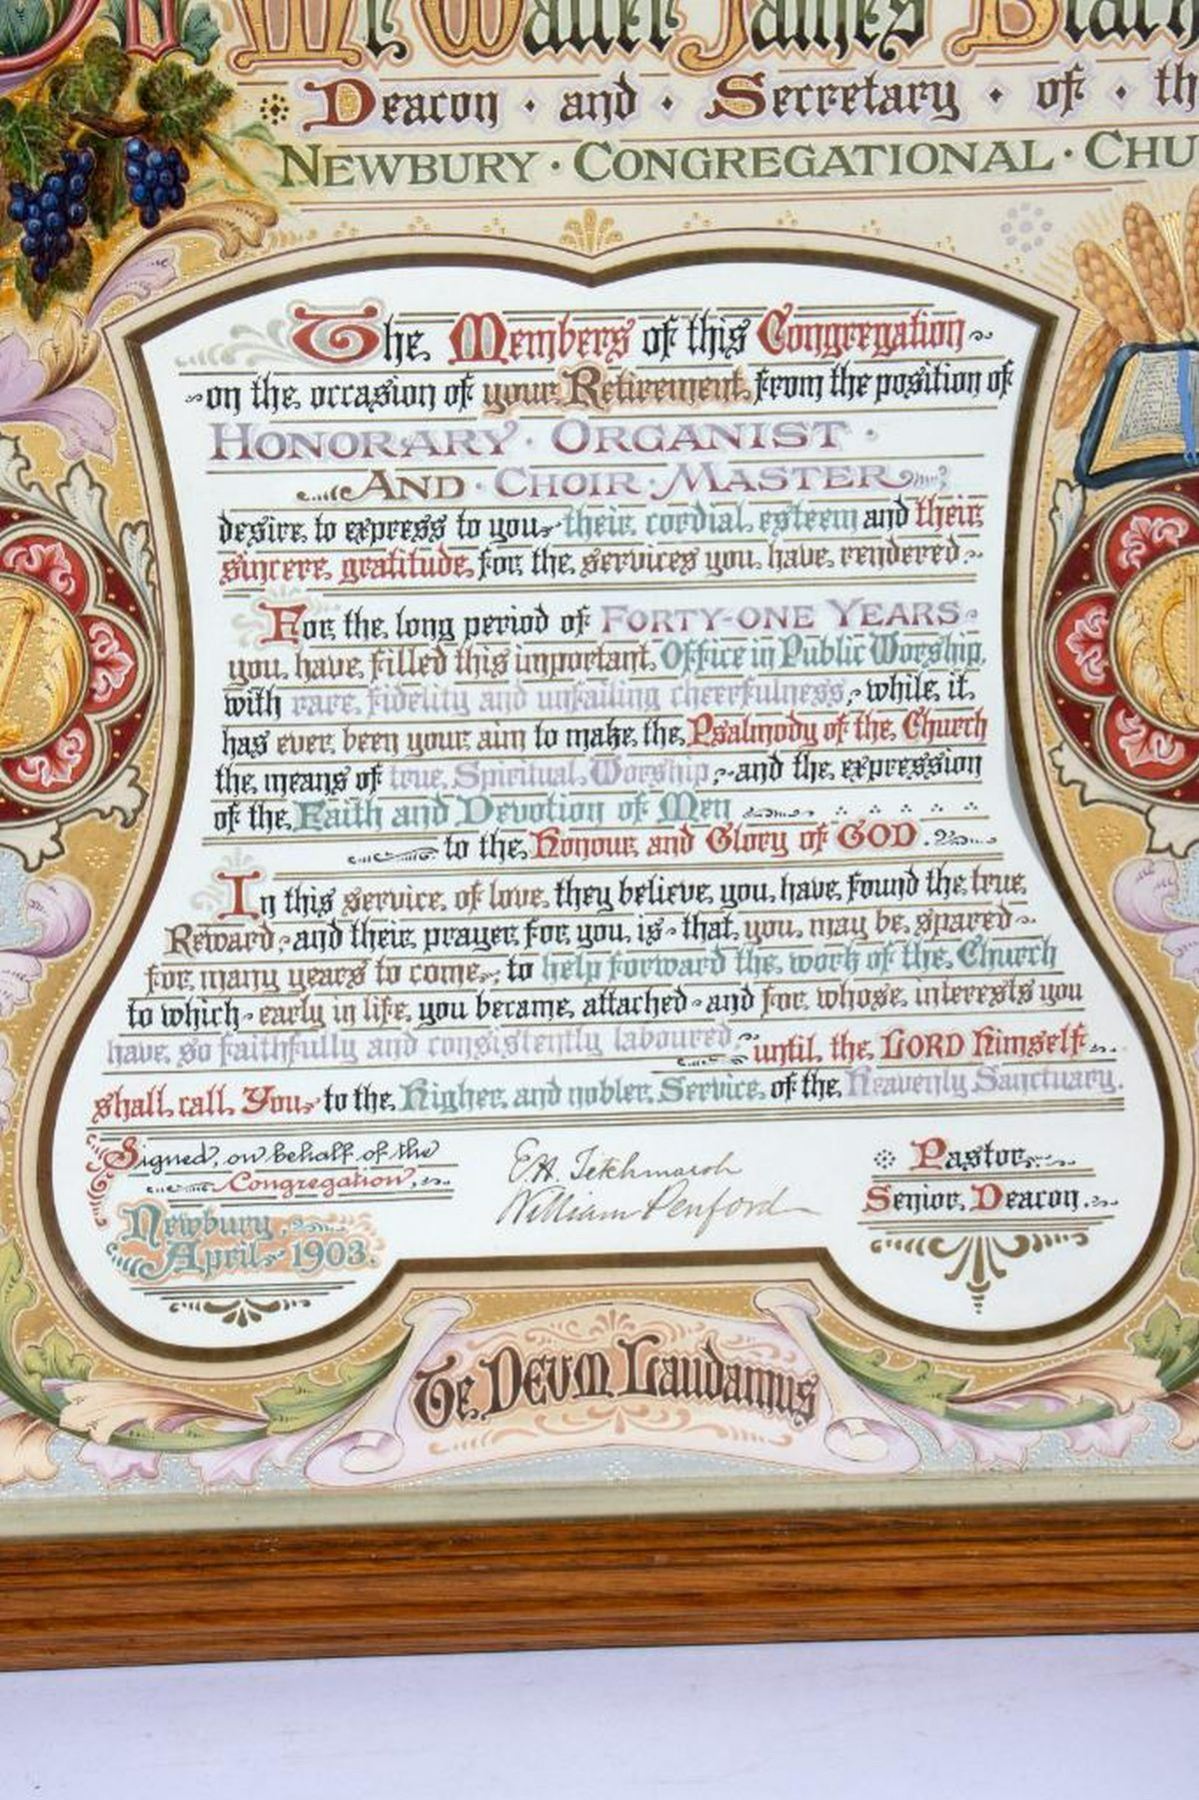 Mr Walter James
Deacon · and · Secretary · of · th
NEWBURY · CONGREGATIONAL · CHU
The Members of this Congregation
on the occasion of your Retirement from the position of
HONORARY · ORGANIST ·
AND · CHOIR · MASTER
desire to express to you their cordial esteem and their
sincere gratitude for the services you have rendered
For the long period of FORTY-ONE YEARS
you have filled this important Office in Public Worship,
with rare fidelity and unfailing cheerfulness, while it
has ever been your aim to make the Psalmody of the Church
the means of true Spiritual Worship, and the expression
of the Faith and Devotion of Men
to the Honour and Glory of GOD.
In this service of love, they believe you have found the true
Reward, and their prayer for you is that you may be spared
for many years to come, to help forward the work of the Church
to which early in life you became attached and for whose interests you
have so faithfully and consistently laboured, until the LORD himself
shall call You to the Higher and nobler Service of the Heavenly Sanctuary.
Signed, on behalf of the
Congregation,
E.H. Titchmarsh Pastor.
William Penford Senior Deacon.
Newbury,
April 1903.
Te DEUM Laudamus